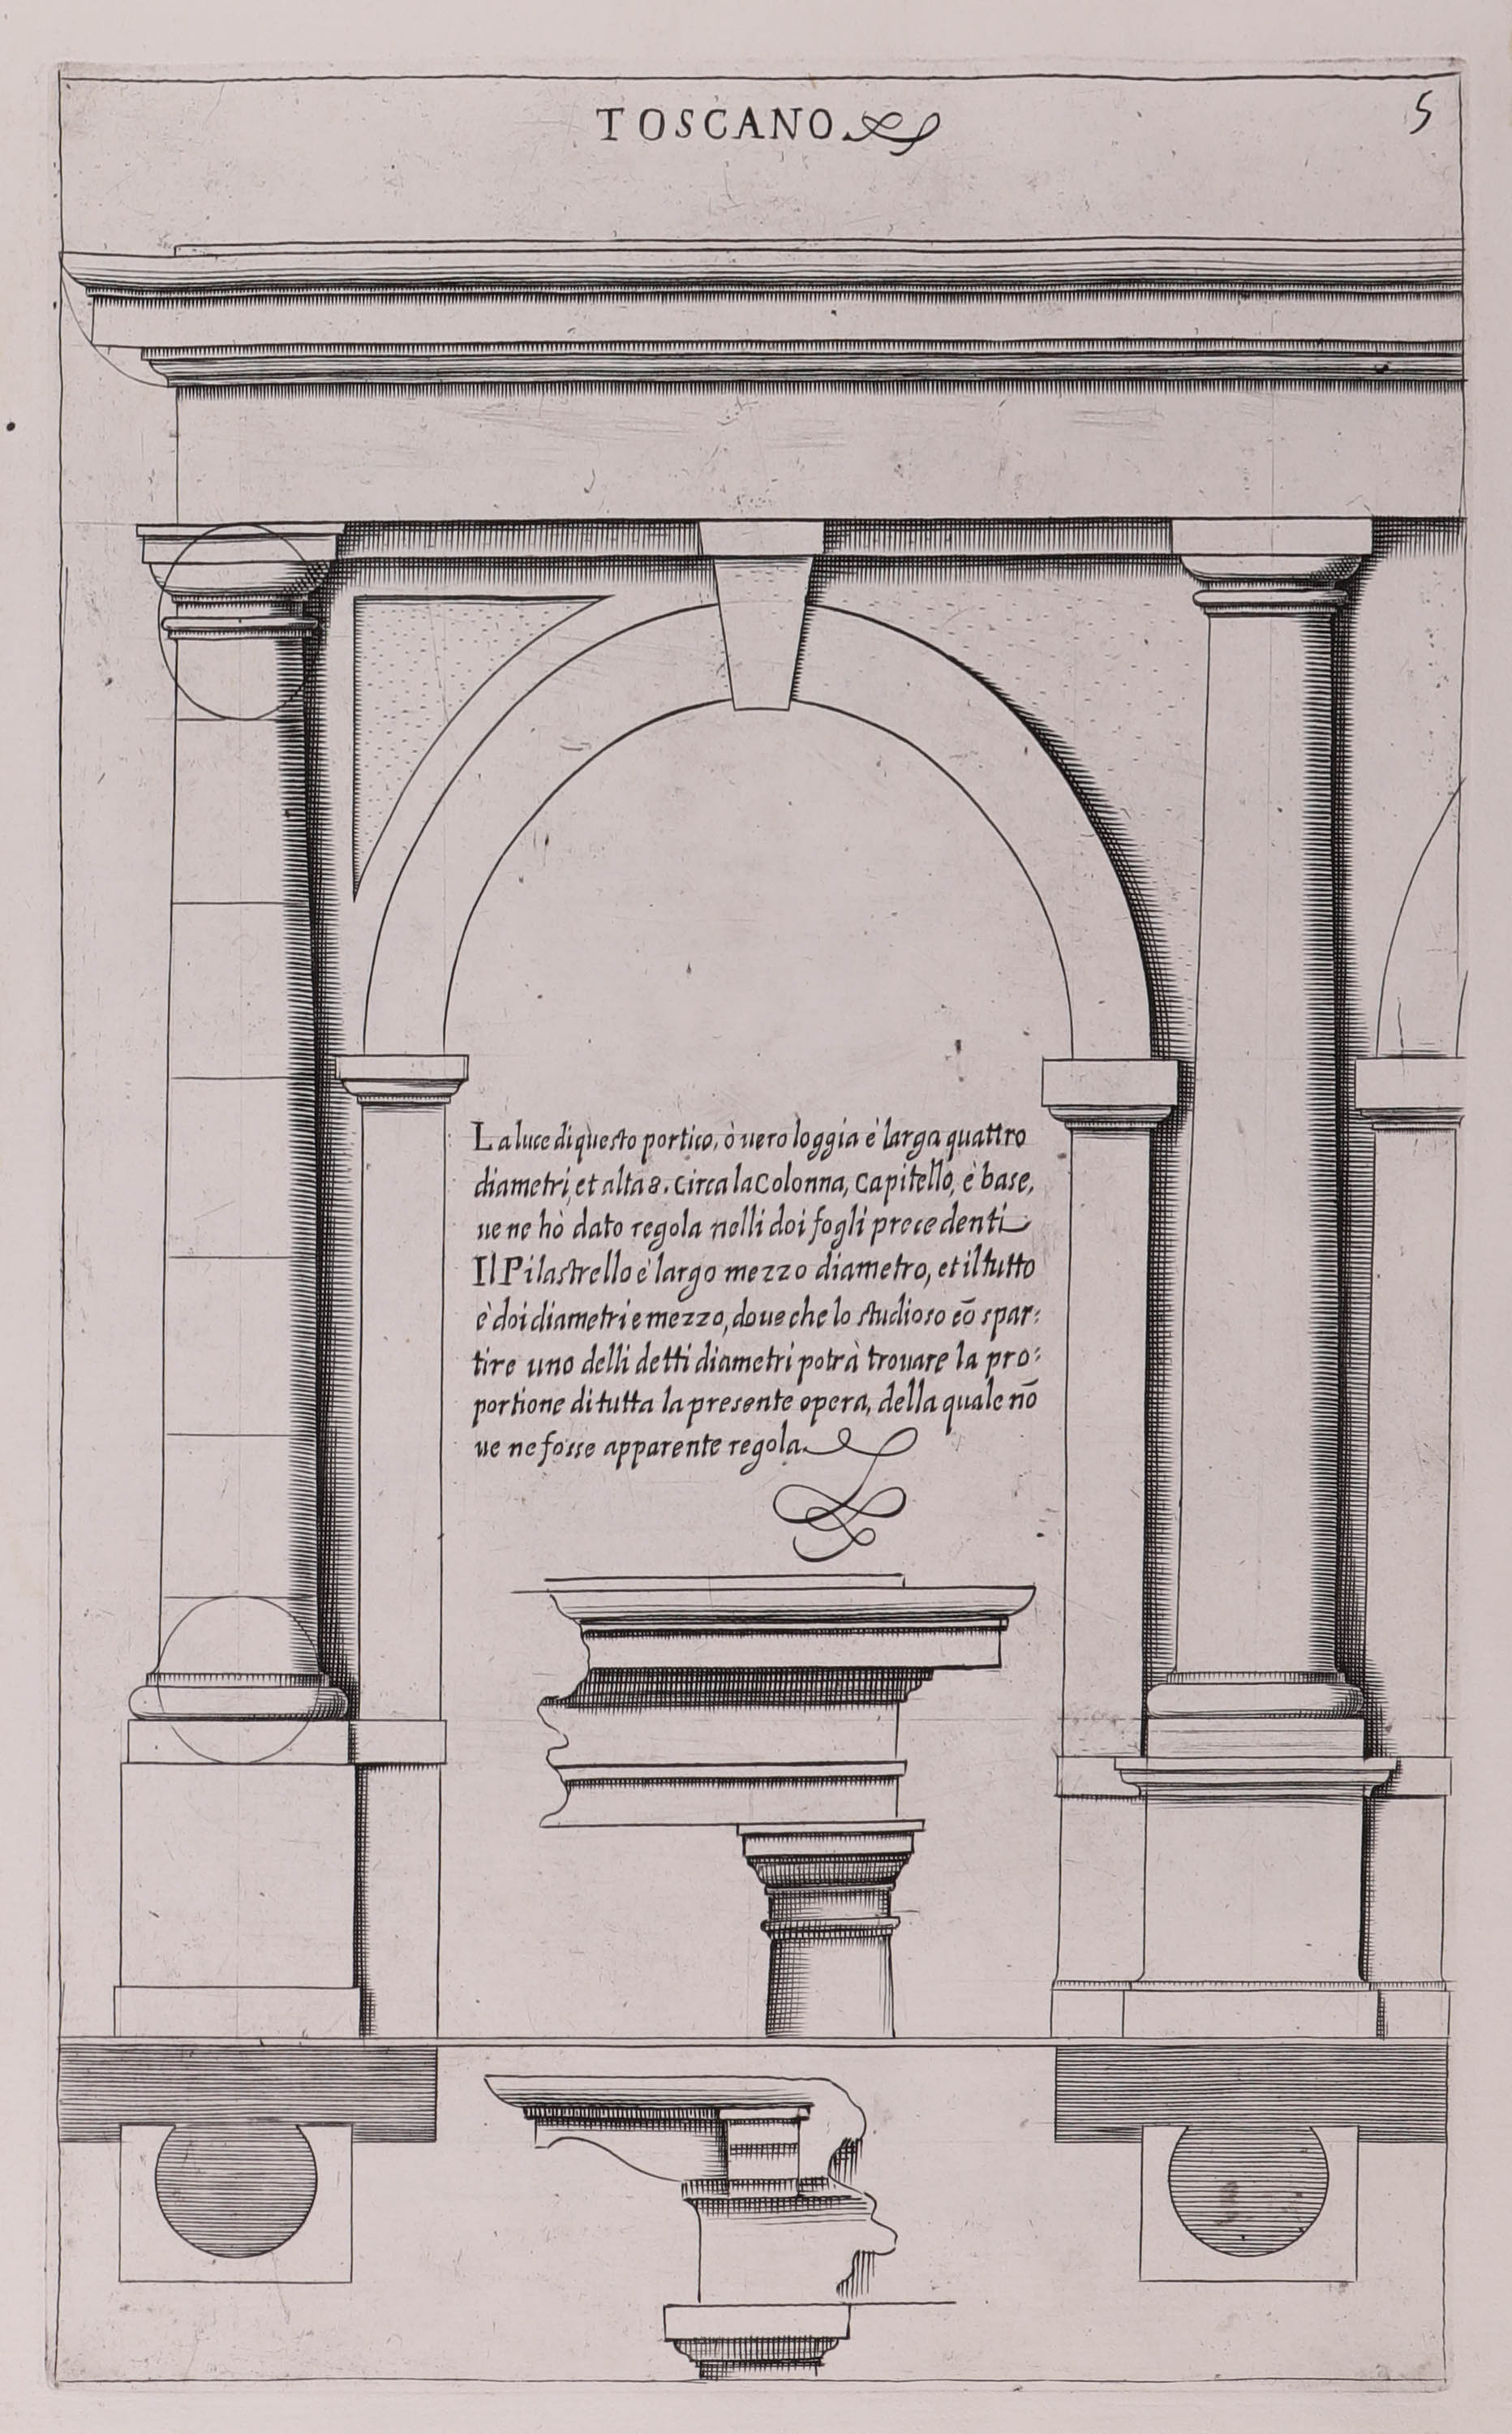 TOSCANO
5
La luce di questo portico, ò uero loggia è larga quattro
diametri, et alta 8. circa la Colonna, Capitello, è base,
ue ne hò dato regola nelli doi fogli precedenti
Il Pilastrello è largo mezzo diametro, et il tutto
è doi diametri e mezzo, doue che lo studioso cō spar:
tire uno delli detti diametri potrà trouare la pro:
portione di tutta la presente opera, della quale nō
ue ne fosse apparente regola.